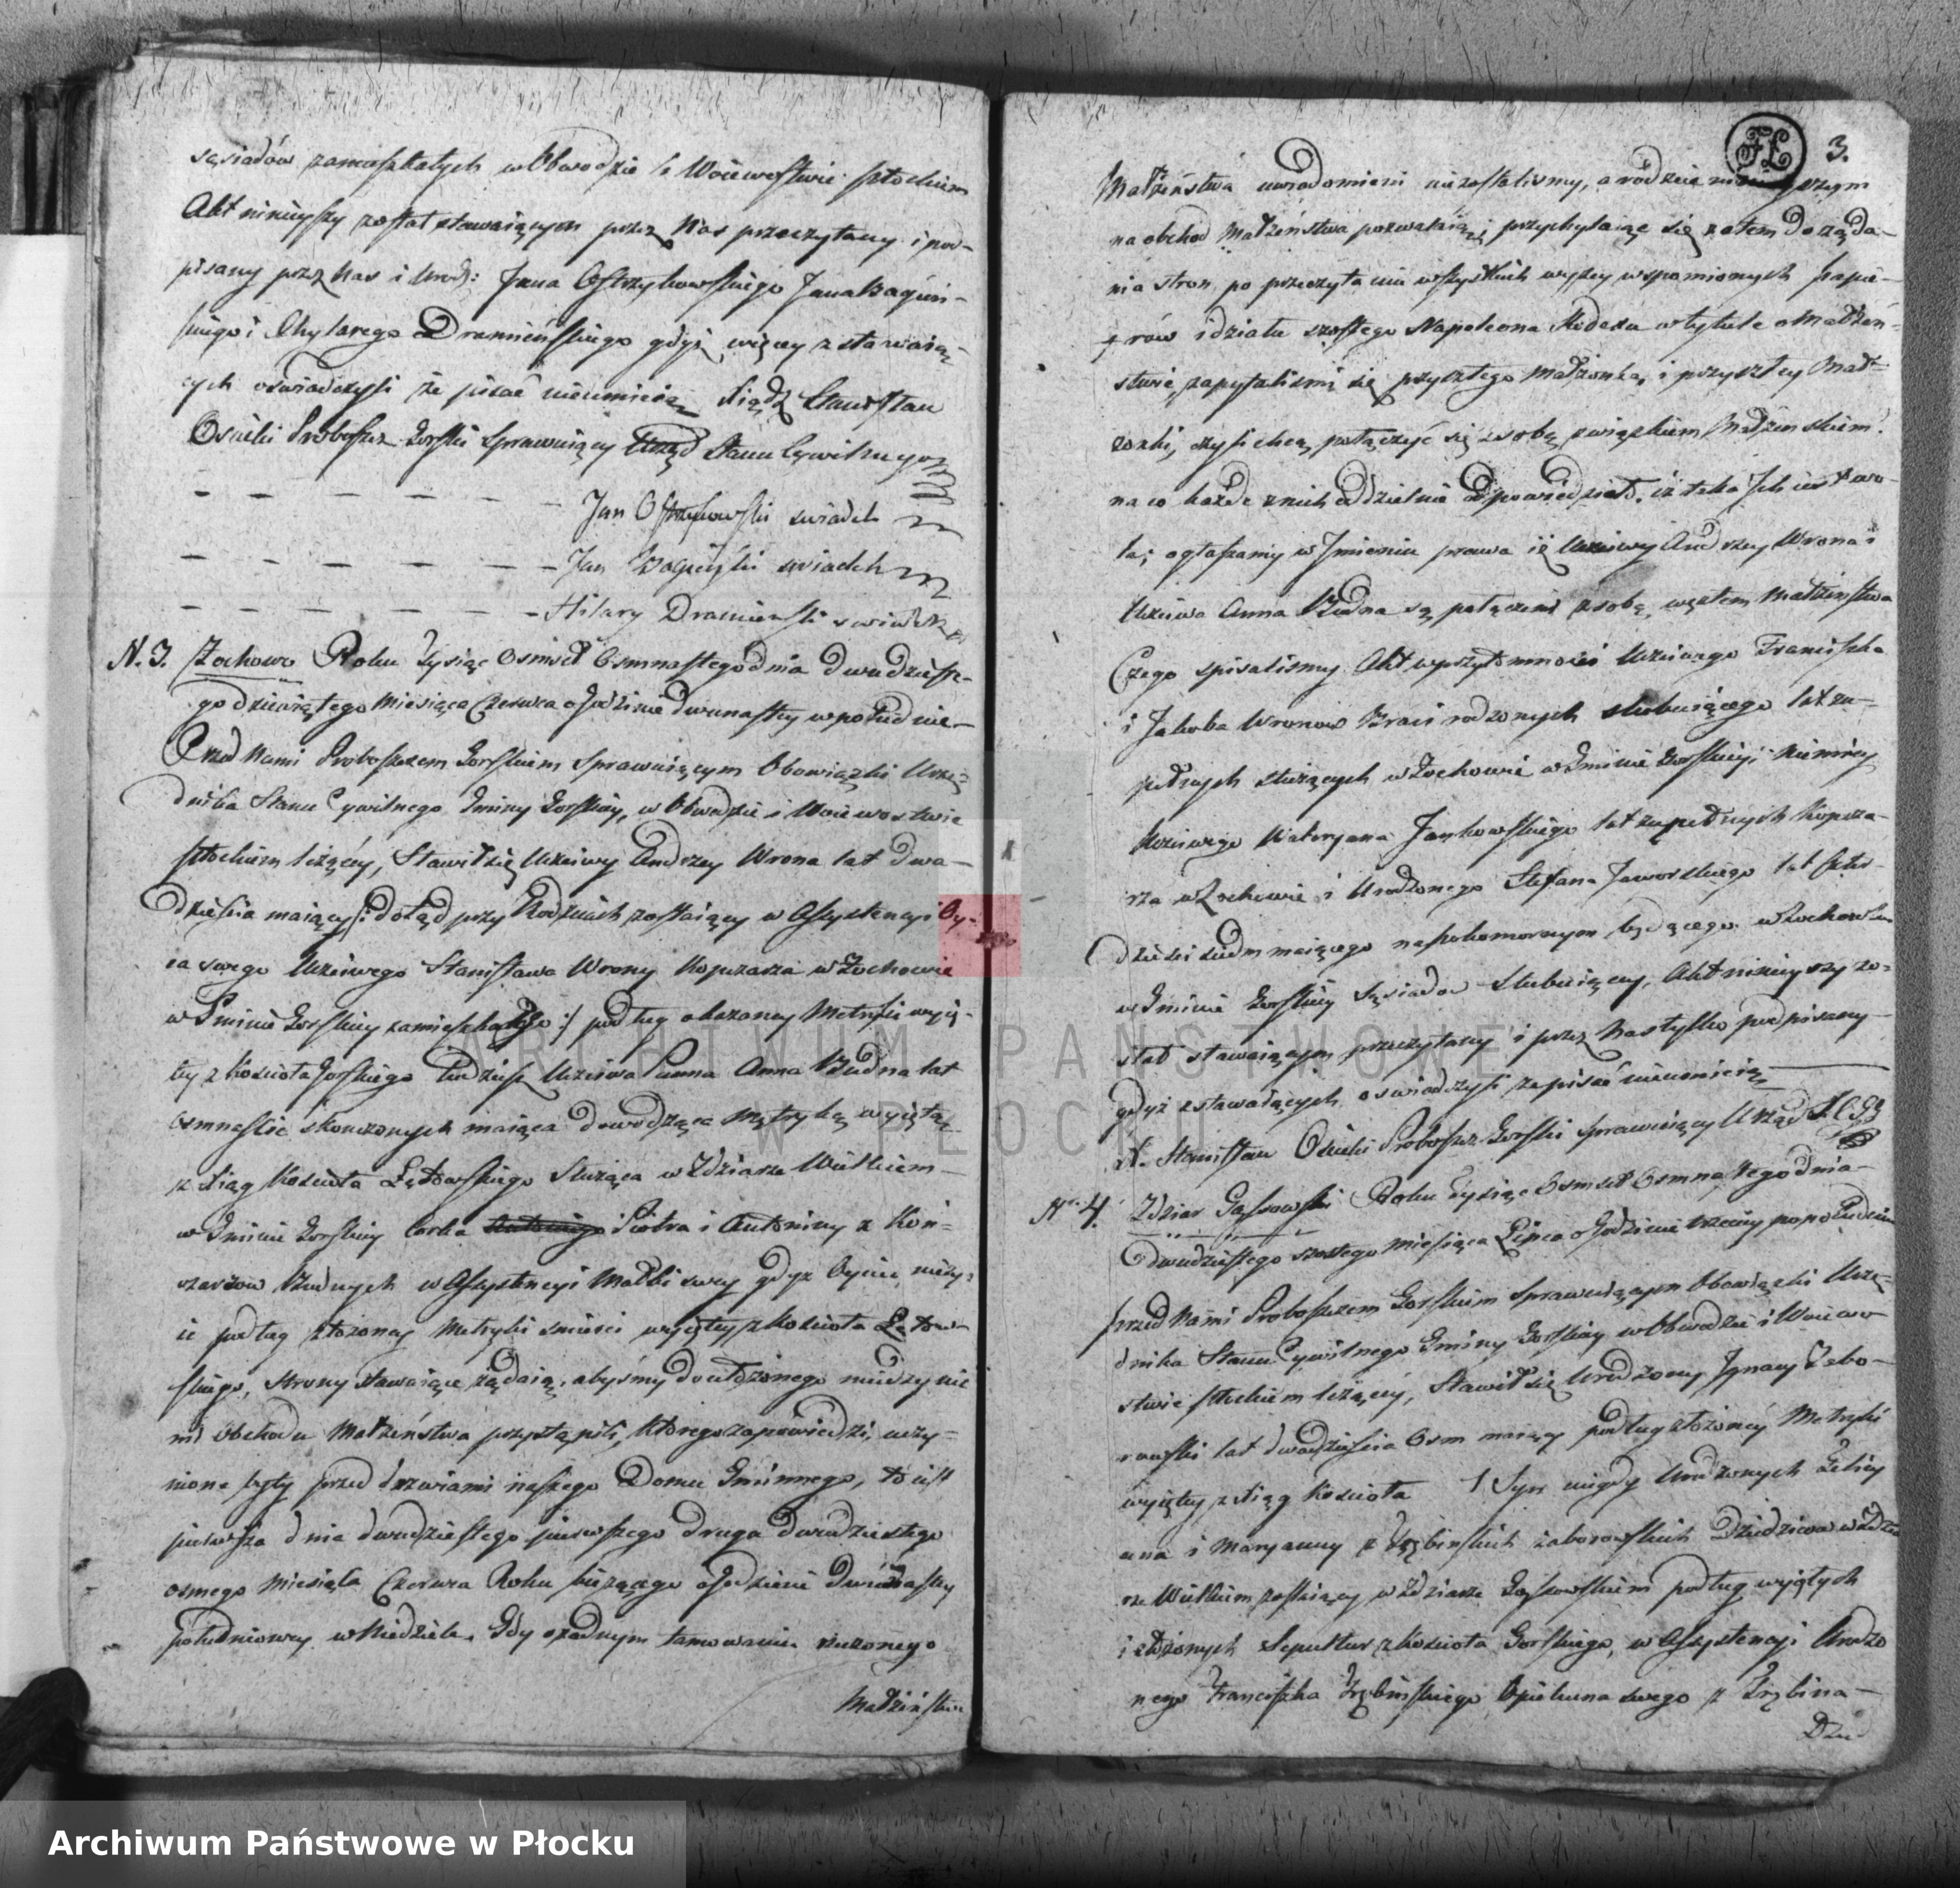 sąsiadów zamieszkałych w Obwodzie i Woiewostwie płockiem
Akt ninieyszy został stawaiącym przez Nas przeczytany i pod-
pisany przez Nas i Urodz: Jana Ostrzykowskiego Jana
skiego i Chylarego Dramińskiego gdyż więcey z stawaią-
cych oświadczyli że pisać nieumieią Xiądz Stanisław
Osiecki Proboszcz Gorski sprawuiący Urząd Stanu Cywilnego
Jan Ostrzykowski swiadek
Jan swiadek
Hilary Dramienski swiadek
N. 3. Żochowo Roku Tysiąc Osmset Osmnastego dnia Dwudzieste-
go dziewiątego Miesiąca Czerwca o Godzinie dwunastey w południe
Przed Nami Proboszczem Gorskiem sprawuiącym Obowiązki Urzę-
dnika Stanu Cywilnego Gminy Gorskiey, w Obwodzie i Woiewostwie
płockiem leżącey, Stawił się Uczciwy Andrzey Wrona lat dwa-
dzieścia maiący /: dotąd przy Rodzicach zostaiący w Assystencyi Oy-
ca swego Uczciwego Stanisława Wrony Kopczarza w Żochowie
w Gminie Gorskiey zamieszkałego :/ podług okazaney Metryki wyię-
tey z Kościoła Gorskiego Tudzież Uczciwa Panna Anna Budna lat
osmnaście skończonych maiąca dowodząca Metryką wyiętą
z Xiąg Kościoła Łętowskiego Służąca w Zdziarze Wielkiem
w Gminie Gorskiey Corka Antoniego Piotra i Antoniny z Kon-
czarzow Budnych w Assystencyi Matki swey gdyż Oyciec nieży-
ie podług złożoney Metryki śmierci wyiętey z Kościoła Łętow-
skiego, Strony stawaiące żądaią, abyśmy do ułożonego między nie-
mi obchodu Małżeństwa przystąpili, którego zapowiedzi, uczy-
nione były przed drzwiami naszego Domu Gminnego, to iest
pierwsza dnia dwudziestego pierwszego druga dwudziestego
osmego Miesiąca Czerwca Roku bieżącego o Godzinie dwunastey
południowey w Niedziele. Gdy o żadnym tamowaniu rzeczonego
Małżeństwa
3.
Małżeństwa uwiadomieni niezostalismy, a rodzice
na obchod Małżeństwa pozwalaią, przychylaiąc się zatem do żąda-
nia stron, po przeczytaniu wszystkich wyżey wspomionych papie-
rów i działu szostego Napoleona Kodexu w tytule o Małżeń-
stwie, zapytaliśmy się przyszłego Małżonka, i przyszłey Mał-
żonki, czyli chcą połączyć się z sobą związkiem Małżenskiem?
na co każde z nich oddzielnie odpowiedziało, iż taka Ich iest wo-
la; ogłaszamy w Imieniu prawa iż Uczciwy Andrzey Wrona i
Uczciwa Anna Budna są połączeni z sobą węzłem Małżeństwa
Czego spisalismy Akt w przytomności Uczciwego Franciszka
i Jakoba Wronow Braci rodzonych slubuiącego lat zu-
pełnych służących w Żochowie w Gminie Gorskiey niemniey
Uczciwego Waleryana Jankowskiego lat zupełnych Kopcza-
rza w Żochowie i Urodzonego Stefana Jaworskiego lat
dzieści siedm maiącego na pokomornym będącego w Żochowie
w Gminie Gorskiey Sąsiadow Slubuiącey, Akt ninieyszy zo-
stał stawaiącym przeczytany i przez Nas tylko podpisany
gdyż z stawaiących oswiadczyli że pisać nieumieią
X. Stanisław Osiecki Proboszcz Gorski sprawuiący Urząd S. C. G
N. 4. Zdziar Gąsowski Roku Tysiąc Osmset Osmnastego dnia
Dwudziestego szostego Miesiąca Lipca o Godzinie trzeciey popołudniu
przed Nami Proboszczem Gorskiem sprawuiącym Obowiązki Urzę-
dnika Stanu Cywilnego Gminy Gorskiey w Obwodzie i Woiewo-
stwie płockiem leżącey, Stawił się Urodzony Ignacy Zabo-
rowski lat dwadzieścia osm maiący podług złożoney Metryki
wyiętey z Xiąg Kościoła / Syn niegdy Urodzonych
ana i Maryanny z Trębinskich Zaborowskich Dziedzicow w Zdzia-
rze Wielkiem zostaiący w Zdziarze Gąsowskiem podług wyiętych
i złożonych Sepultur z Kościoła Gorskiego, w Assystencyi Urodzo-
nego Franciszka Trębinskiego Opiekuna swego z Trębina
Archiwum Państwowe w Płocku
ARCHIWUM PAŃSTWOWE
W PŁOCKU